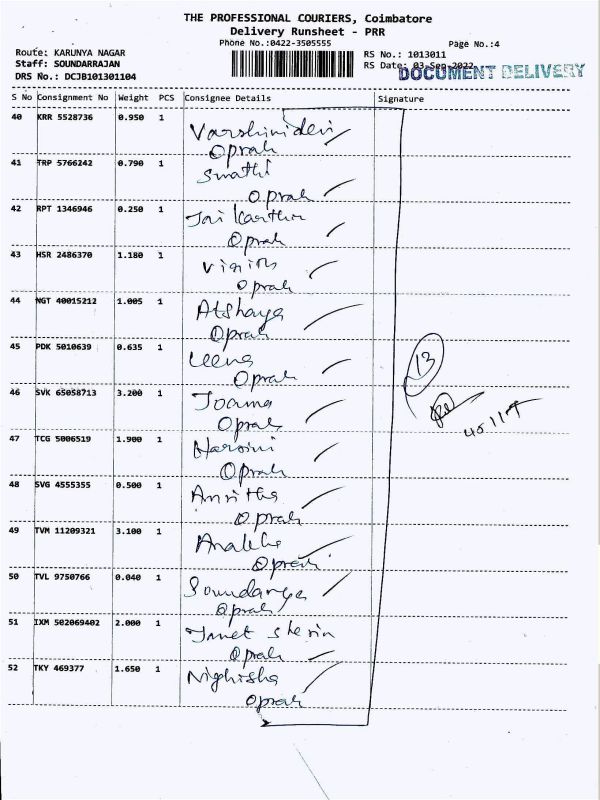 THE PROFESSIONAL COURIERS, Coimbatore
Delivery Runsheet - PRR
Phone No.:0422-3505555
Page No.:4
Route: KARUNYA NAGAR
RS No.: 1013011
Staff: SOUNDARRAJAN
RS Date: 03-Sep-2022
DOCUMENT DELIVERY
DRS No.: DCJB101301104
S No Consignment No Weight PCS Consignee Details Signature
40 KRR 5528736 0.950 1
Varshinidevi
Oprah
41 TRP 5766242 0.790 1
Swathi
Oprah
42 RPT 1346946 0.250 1
Jai Karthin
Oprah
43 HSR 2486370 1.180 1
Oprah
44 NGT 40015212 1.005 1
Atshaya
Oprah
45 PDK 5010639 0.635 1
Leena
Oprah
13
46 SVK 65058713 3.200 1
Joanna
Oprah
47 TCG 5006519 1.900 1
Harsini
Oprah
48 SVG 4555355 0.500 1
Anritha
Oprah
49 TVM 11209321 3.100 1
Oprah
50 TVL 9750766 0.040 1
Soundarya
Oprah
51 IXM 502069402 2.000 1
Janet Sherin
Oprah
52 TKY 469377 1.650 1
Nighisha
Oprah